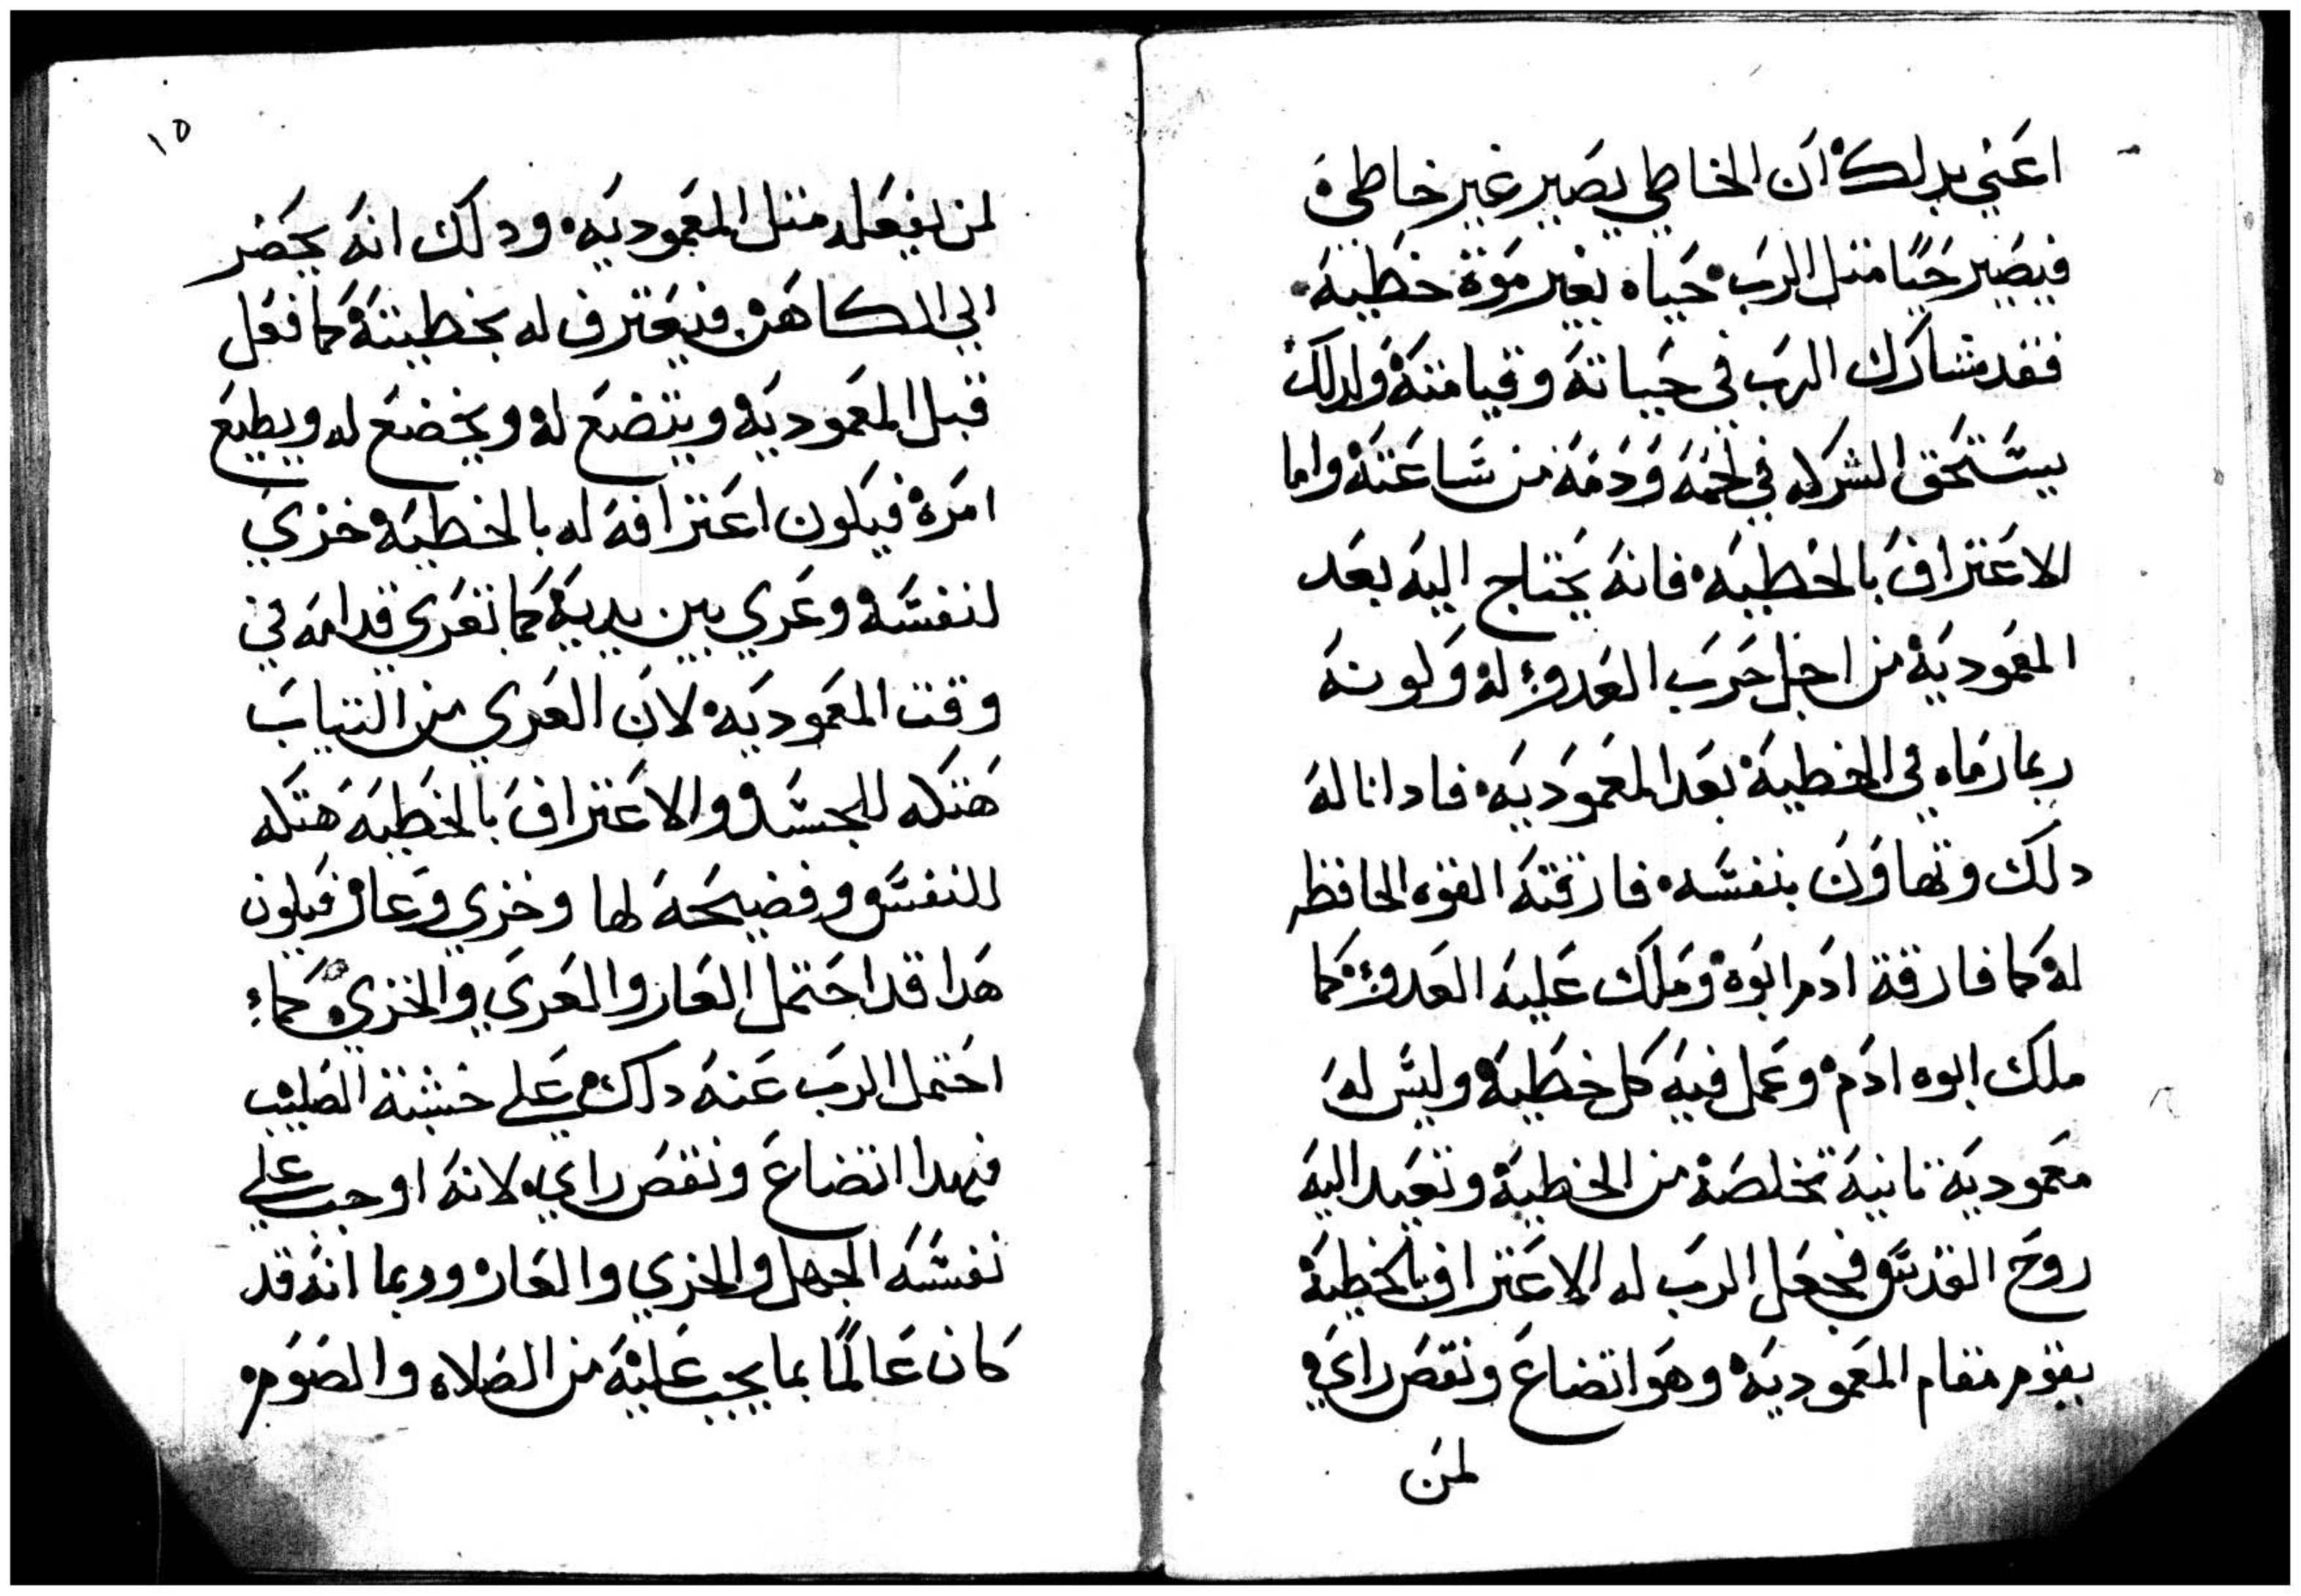 اعني بدلك ان الخاطي يصير غير خاطي
فيصير حيًا متل الرب حياه بغير موتة خطيه
فقد شارك الرب في حياته وقيامته ولدلك
يستحق الشركه في لحمه ودمه من ساعته واما
الاعتراف بالخطيه فانه يحتاج اليه بعد
المعموديه من اجل حرب العدو له وكونه
ربما رماه في الخطية بعد المعموديه فادا ناله
دلك وتهاون بنفسه فارقته القوه الحافظه
له كما فارقة ادم ابوه وملك عليه العدو كما
ملك ابوه ادم وعمل فيه كل خطيه وليس له
معموديه تانية تخلصه من الخطية وتعيد اليه
روح القدس فجعل الرب له الاعتراف بالخطية
يقوم مقام المعموديه وهو اتضاع ونقص راي
لمن
١٥
لمن يفعله متل المعموديه ودلك انه يحضر
الي الكاهن فيعترف له بخطيته كما فعل
قبل المعموديه ويتضع له ويخضع له ويطيع
امره فيكون اعترافه له بالخطيه خزي
لنفسه وعري بين يديه كما تعري قدامه في
وقت المعموديه لان العري من التياب
هتكه للجسد والاعتراف بالخطيه هتكه
للنفس وفضيحة لها وخزي وعار فيكون
هدا قد احتمل العار والعري والخزي كما
احتمل الرب عنه دلك علي خشبة الصليب
فهدا اتضاع ونقص راي لانه اوجب علي
نفسه الجهل والخزي والعار وربما انه قد
كان عالمًا بما يجب عليه من الصلاه والصوم